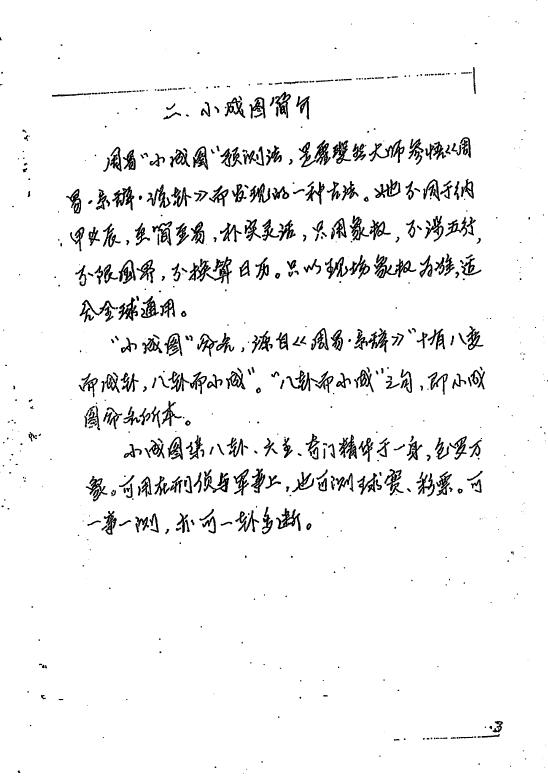 二、小成图简介
周易“小成图”预测法，是霍斐然大师参悟《周
易·系辞·说卦》而发现的一种古法。她不用于纳
甲爻辰，至简至易，朴实灵活，只用象数，不涉五行，
不限国界，不换算日历。只以现场象数为准，适
合全球通用。
“小成图”命名，源自《周易·系辞》“十有八变
而成卦，八卦而小成”。“八卦而小成”之句，即小成
图命名所本。
小成图集八卦、六壬、奇门精华于一身，包罗万
象。可用在刑侦与军事上，也可测球赛、彩票。可
一事一测，亦可一卦多断。
3